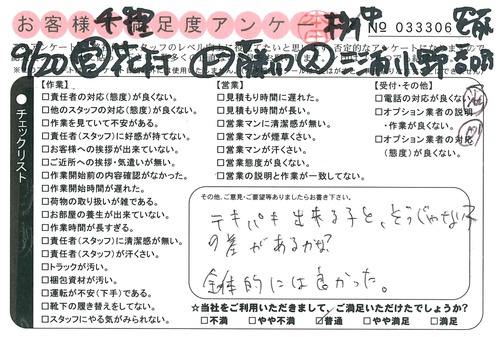 お客様 満足度アンケ
No 033306
チェックリスト
【作業】
□責任者の対応(態度)が良くない。
□他のスタッフの対応(態度)が良くない。
□作業を見ていて不安がある。
□責任者(スタッフ)に好感が持てない。
□お客様への挨拶が出来ていない。
□ご近所への挨拶・気遣いが無い。
□作業開始前の内容確認がなかった。
□作業開始時間が遅れた。
□荷物の取り扱いが雑である。
□お部屋の養生が出来ていない。
□作業時間が長すぎる。
□責任者(スタッフ)に清潔感が無い。
□責任者(スタッフ)が汗くさい。
□トラックが汚い。
□梱包資材が汚い。
□運転が不安(下手)である。
□靴下の履き替えをしてない。
□スタッフにやる気がみられない。
【営業】
□見積もり時間に遅れた。
□見積もり時間が長い。
□営業マンに清潔感が無い。
□営業マンが煙草くさい。
□営業マンが汗くさい。
□営業態度が良くない。
□営業の説明と作業が一致してない。
【受付・その他】
□電話の対応が良くない
□オプション業者の説明
・作業が良くない。
□オプション業者の対応
(態度)が良くない。
その他、ご意見・ご要望等ありましたらお書き下さい。
テキパキ出来る子と、そうじゃない子
の差があるかな?
全体的には良かった。
☆当社をご利用いただきまして、ご満足いただけたでしょうか?
□不満 □やや不満 ☑普通 □やや満足 □満足